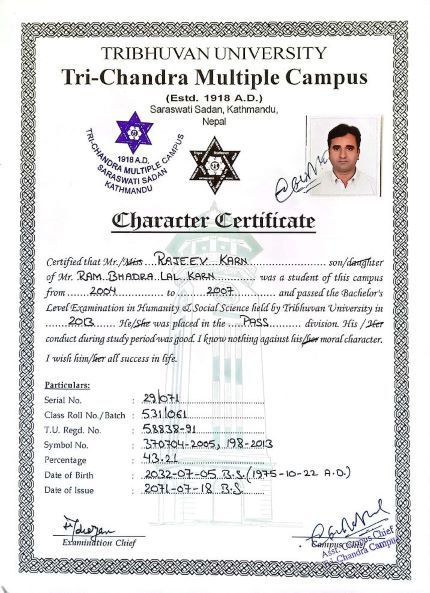 TRIBHUVAN UNIVERSITY
Tri-Chandra Multiple Campus
(Estd. 1918 A.D.)
Saraswati Sadan, Kathmandu,
Nepal
1918 A.D.
TRI-CHANDRA MULTIPLE CAMPUS
SARASWATI SADAN
KATHMANDU
Character Certificate
Certified that Mr./Miss RAJEEV KARN son/daughter
of Mr. RAM BHADRA LAL KARN was a student of this campus
from 2004 to 2007 and passed the Bachelor's
Level Examination in Humanity & Social Science held by Tribhuvan University in
2013 He/She was placed in the PASS division. His / Her
conduct during study period was good. I know nothing against his/her moral character.
I wish him/her all success in life.
Particulars:
Serial No. : 29/071
Class Roll No./Batch : 531/061
T.U. Regd. No. : 58838-91
Symbol No. : 370704-2005, 198-2013
Percentage : 43.21
Date of Birth : 2032-07-05 B.S. (1975-10-22 A.D.)
Date of Issue : 2071-07-18 B.S.
Examination Chief
Campus Chief
Asst. Campus Chief
Tri-Chandra Campus